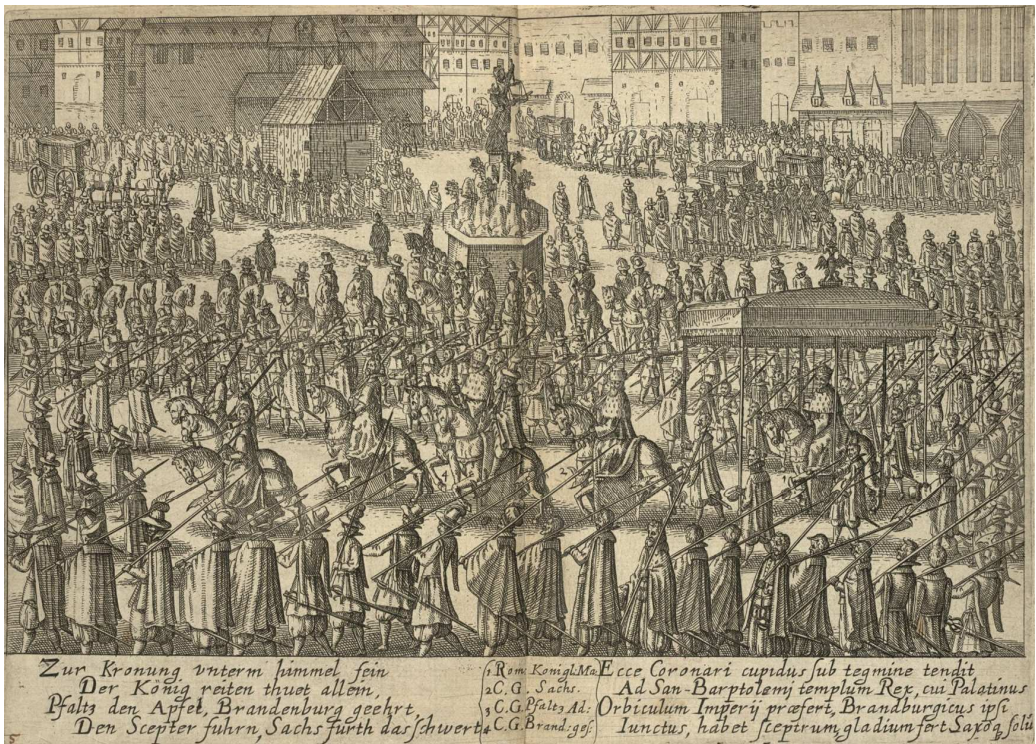 Zur Kronung vnterm himmel fein
Der König reiten thuet allein,
Pfaltz den Apfel, Brandenburg geehrt,
Den Scepter fuhrn, Sachs fürth das schwert
1 Rom: Konigl: Ma
2 C. G. Sachs.
3 C. G. Pfaltz Ad:
4 C. G. Brand: ges:
Ecce Coronari cupidus sub tegmine tendit
Ad San-Barptolæmj templum Rex, cui Palatinus
Orbiculum Imperij præfert, Brandburgicus ipsi
Iunctus, habet sceptrum, gladium fert Saxoq̧ solus
5